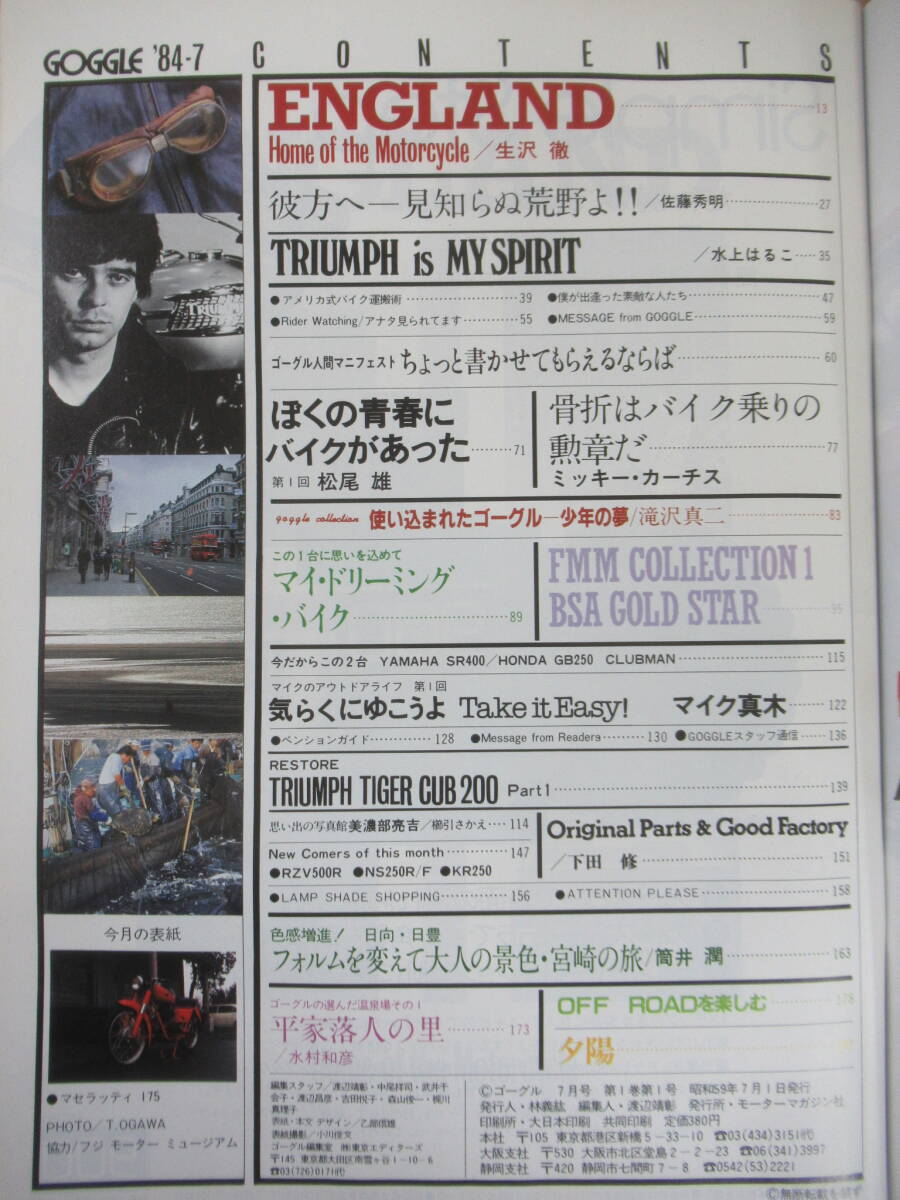 GOGGLE '84-7 CONTENTS
ENGLAND 13
Home of the Motorcycle／生沢 徹
彼方へ―見知らぬ荒野よ!!／佐藤秀明 27
TRIUMPH is MY SPIRIT ／水上はるこ 35
●アメリカ式バイク運搬術 39
●僕が出逢った素敵な人たち 47
●Rider Watching/アナタ見られてます 55
●MESSAGE from GOGGLE 59
ゴーグル人間マニフェスト ちょっと書かせてもらえるならば 60
ぼくの青春に
バイクがあった 71
第1回 松尾 雄
骨折はバイク乗りの
勲章だ 77
ミッキー・カーチス
goggle collection 使い込まれたゴーグル―少年の夢/滝沢真二 83
この1台に思いを込めて
マイ・ドリーミング
・バイク 89
FMM COLLECTION 1
BSA GOLD STAR 95
今だからこの2台 YAMAHA SR400／HONDA GB250 CLUBMAN 115
マイクのアウトドアライフ 第1回
気らくにゆこうよ Take it Easy! マイク真木 122
●ペンションガイド 128 ●Message from Readers 130 ●GOGGLEスタッフ通信 136
RESTORE
TRIUMPH TIGER CUB 200 Part 1 139
思い出の写真館 美濃部亮吉／櫛引さかえ 114
New Comers of this month 147
●RZV500R ●NS250R/F ●KR250
Original Parts & Good Factory
／下田 修 151
●LAMP SHADE SHOPPING 156
●ATTENTION PLEASE 158
色感増進！ 日向・日豊
フォルムを変えて大人の景色・宮崎の旅/筒井 潤 163
ゴーグルの選んだ温泉場その1
平家落人の里 173
／水村和彦
OFF ROADを楽しむ 178
夕陽
今月の表紙
●マセラッティ 175
PHOTO／T.OGAWA
協力／フジ モーター ミュージアム
編集スタッフ／渡辺靖彰・中尾祥司・武井千
会子・渡辺昌彦・吉田悦子・森山俊一・梶川
真理子
表紙・本文 デザイン／乙部信雄
表紙撮影／小川俊文
ゴーグル編集室 ㈱東京エディターズ
〒145 東京都大田区南雪ヶ谷1-10-6
☎03(726)0171代
Ⓒゴーグル 7月号 第1巻第1号 昭和59年7月1日発行
発行人・林義紘 編集人・渡辺靖彰 発行所・モーターマガジン社
印刷所・大日本印刷 共同印刷 定価380円
本社 〒105 東京都港区新橋5-33-10 ☎03(434)3151代
大阪支社 〒530 大阪市北区堂島2-2-23 ☎06(341)3997
静岡支社 〒420 静岡市七間町7-8 ☎0542(53)2221
Ⓒ無断転載を禁ず